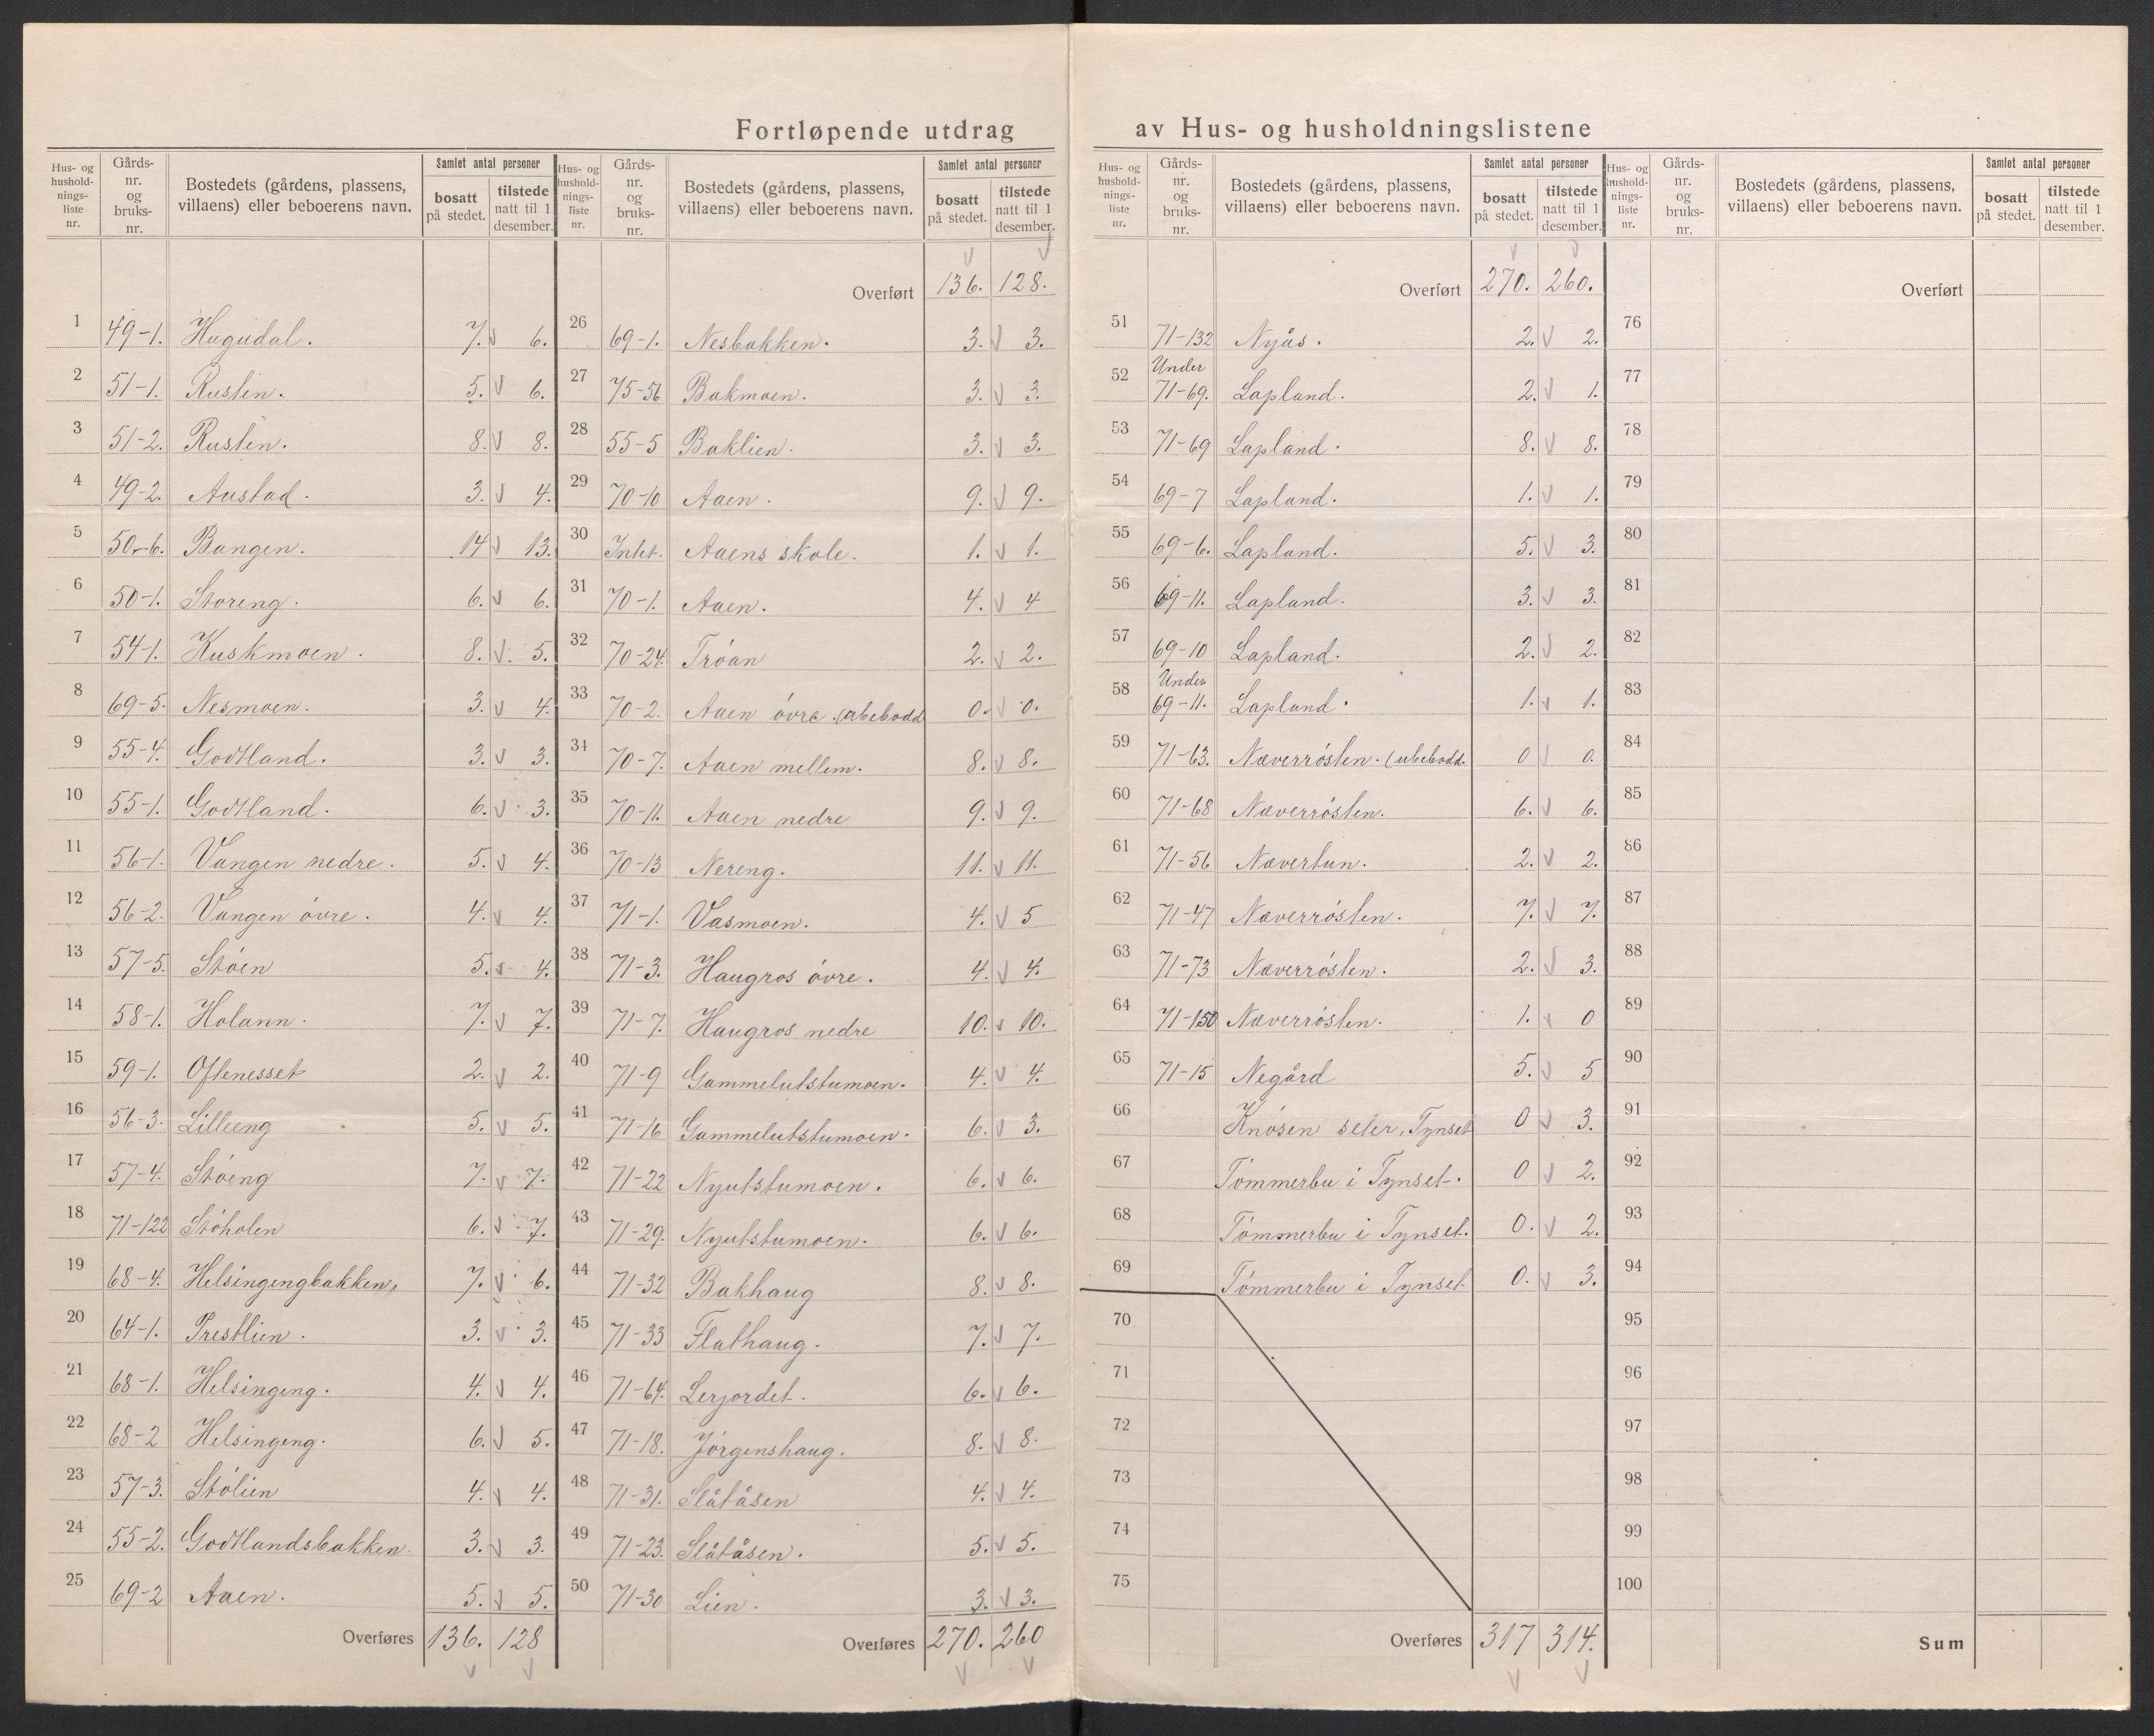 Fortløpende utdrag av Hus- og husholdningslistene
Hus- og hushold- nings- liste nr. | Gårds- nr. og bruks- nr. | Bostedets (gårdens, plassens, villaens) eller beboerens navn. | Samlet antal personer | bosatt på stedet. | tilstede natt til 1 desember.
1 49-1. Hugudal. 7. 6.
2 51-1. Rusten. 5. 6.
3 51-2. Rusten. 8. 8.
4 49-2. Austad. 3. 4.
5 50-6. Bangen. 14 13.
6 50-1. Storeng. 6. 6.
7 54-1. Kuskmoen. 8. 5.
8 69-5. Nesmoen. 3. 4.
9 55-4. Godtland. 3. 3.
10 55-1. Godtland. 6. 3.
11 56-1. Vangen nedre. 5. 4.
12 56-2. Vangen övre. 4. 4.
13 57-5. Stöen 5. 4.
14 58-1. Holann. 7. 7.
15 59-1. Oftenesset 2. 2.
16 56-3. Lilleeng 5. 5.
17 57-4. Stöeng 7. 7.
18 71-122 Stöholen 6. 7.
19 68-4. Helsingengbakken. 7. 6.
20 64-1. Prestlien. 3. 3.
21 68-1. Helsingeng. 4. 4.
22 68-2 Helsingeng. 6. 5.
23 57-3. Stölien 4. 4.
24 55-2. Godtlandsbakken. 3. 3.
25 69-2 Aaen. 5. 5.
Overføres 136. 128
Hus- og hushold- nings- liste nr. | Gårds- nr. og bruks- nr. | Bostedets (gårdens, plassens, villaens) eller beboerens navn. | Samlet antal personer | bosatt på stedet. | tilstede natt til 1 desember.
Overført 136. 128.
26 69-1. Nesbakken. 3. 3.
27 75-56 Bakmoen. 3. 3.
28 55-5 Baklien. 3. 3.
29 70-10 Aaen. 9. 9.
30 Intet. Aaens skole. 1. 1.
31 70-1. Aaen. 4. 4
32 70-24. Tröan 2. 2.
33 70-2. Aaen övre. (ubebodd 0. 0.
34 70-7. Aaen mellem. 8. 8.
35 70-11. Aaen nedre 9. 9.
36 70-13 Nereng. 11. 11.
37 71-1. Vasmoen. 4. 5
38 71-3. Haugros övre. 4. 4.
39 71-7. Haugros nedre 10. 10.
40 71-9 Gammelutstumoen. 4. 4.
41 71-16 Gammelutstumoen. 6. 3.
42 71-22 Nyutstumoen. 6. 6.
43 71-29. Nyutstumoen. 6. 6.
44 71-32 Bakhaug 8. 8.
45 71-33 Flathaug. 7. 7.
46 71-64. Lerjordet. 6. 6.
47 71-18. Jörgenshaug. 8. 8.
48 71-31. Slåtåsen 4. 4.
49 71-23. Slåtåsen. 5. 5.
50 71-30 Lien. 3. 3.
Overføres 270. 260
Hus- og hushold- nings- liste nr. | Gårds- nr. og bruks- nr. | Bostedets (gårdens, plassens, villaens) eller beboerens navn. | Samlet antal personer | bosatt på stedet. | tilstede natt til 1 desember.
Overført 270. 260.
51 71-132 Nyås. 2. 2.
52 Under 71-69. Lapland. 2. 1.
53 71-69 Lapland. 8. 8.
54 69-7 Lapland. 1. 1.
55 69-6. Lapland. 5. 3.
56 69-11. Lapland. 3. 3.
57 69-10 Lapland. 2. 2.
58 Under 69-11. Lapland. 1. 1.
59 71-63. Næverrösten. (ubebodd. 0 0.
60 71-68 Næverrösten. 6. 6.
61 71-56 Nævertun. 2. 2.
62 71-47 Næverrösten. 7. 7.
63 71-73 Næverrösten. 2. 3.
64 71-150 Næverrösten. 1. 0
65 71-15 Negård 5. 5
66 Knösen seter, Tynset 0 3.
67 Tömmerbu i Tynset. 0 2.
68 Tömmerbu i Tynset. 0. 2.
69 Tömmerbu i Tynset 0. 3.
70
71
72
73
74
75
Overføres 317 314.
Hus- og hushold- nings- liste nr. | Gårds- nr. og bruks- nr. | Bostedets (gårdens, plassens, villaens) eller beboerens navn. | Samlet antal personer | bosatt på stedet. | tilstede natt til 1 desember.
Overført
76
77
78
79
80
81
82
83
84
85
86
87
88
89
90
91
92
93
94
95
96
97
98
99
100
Sum